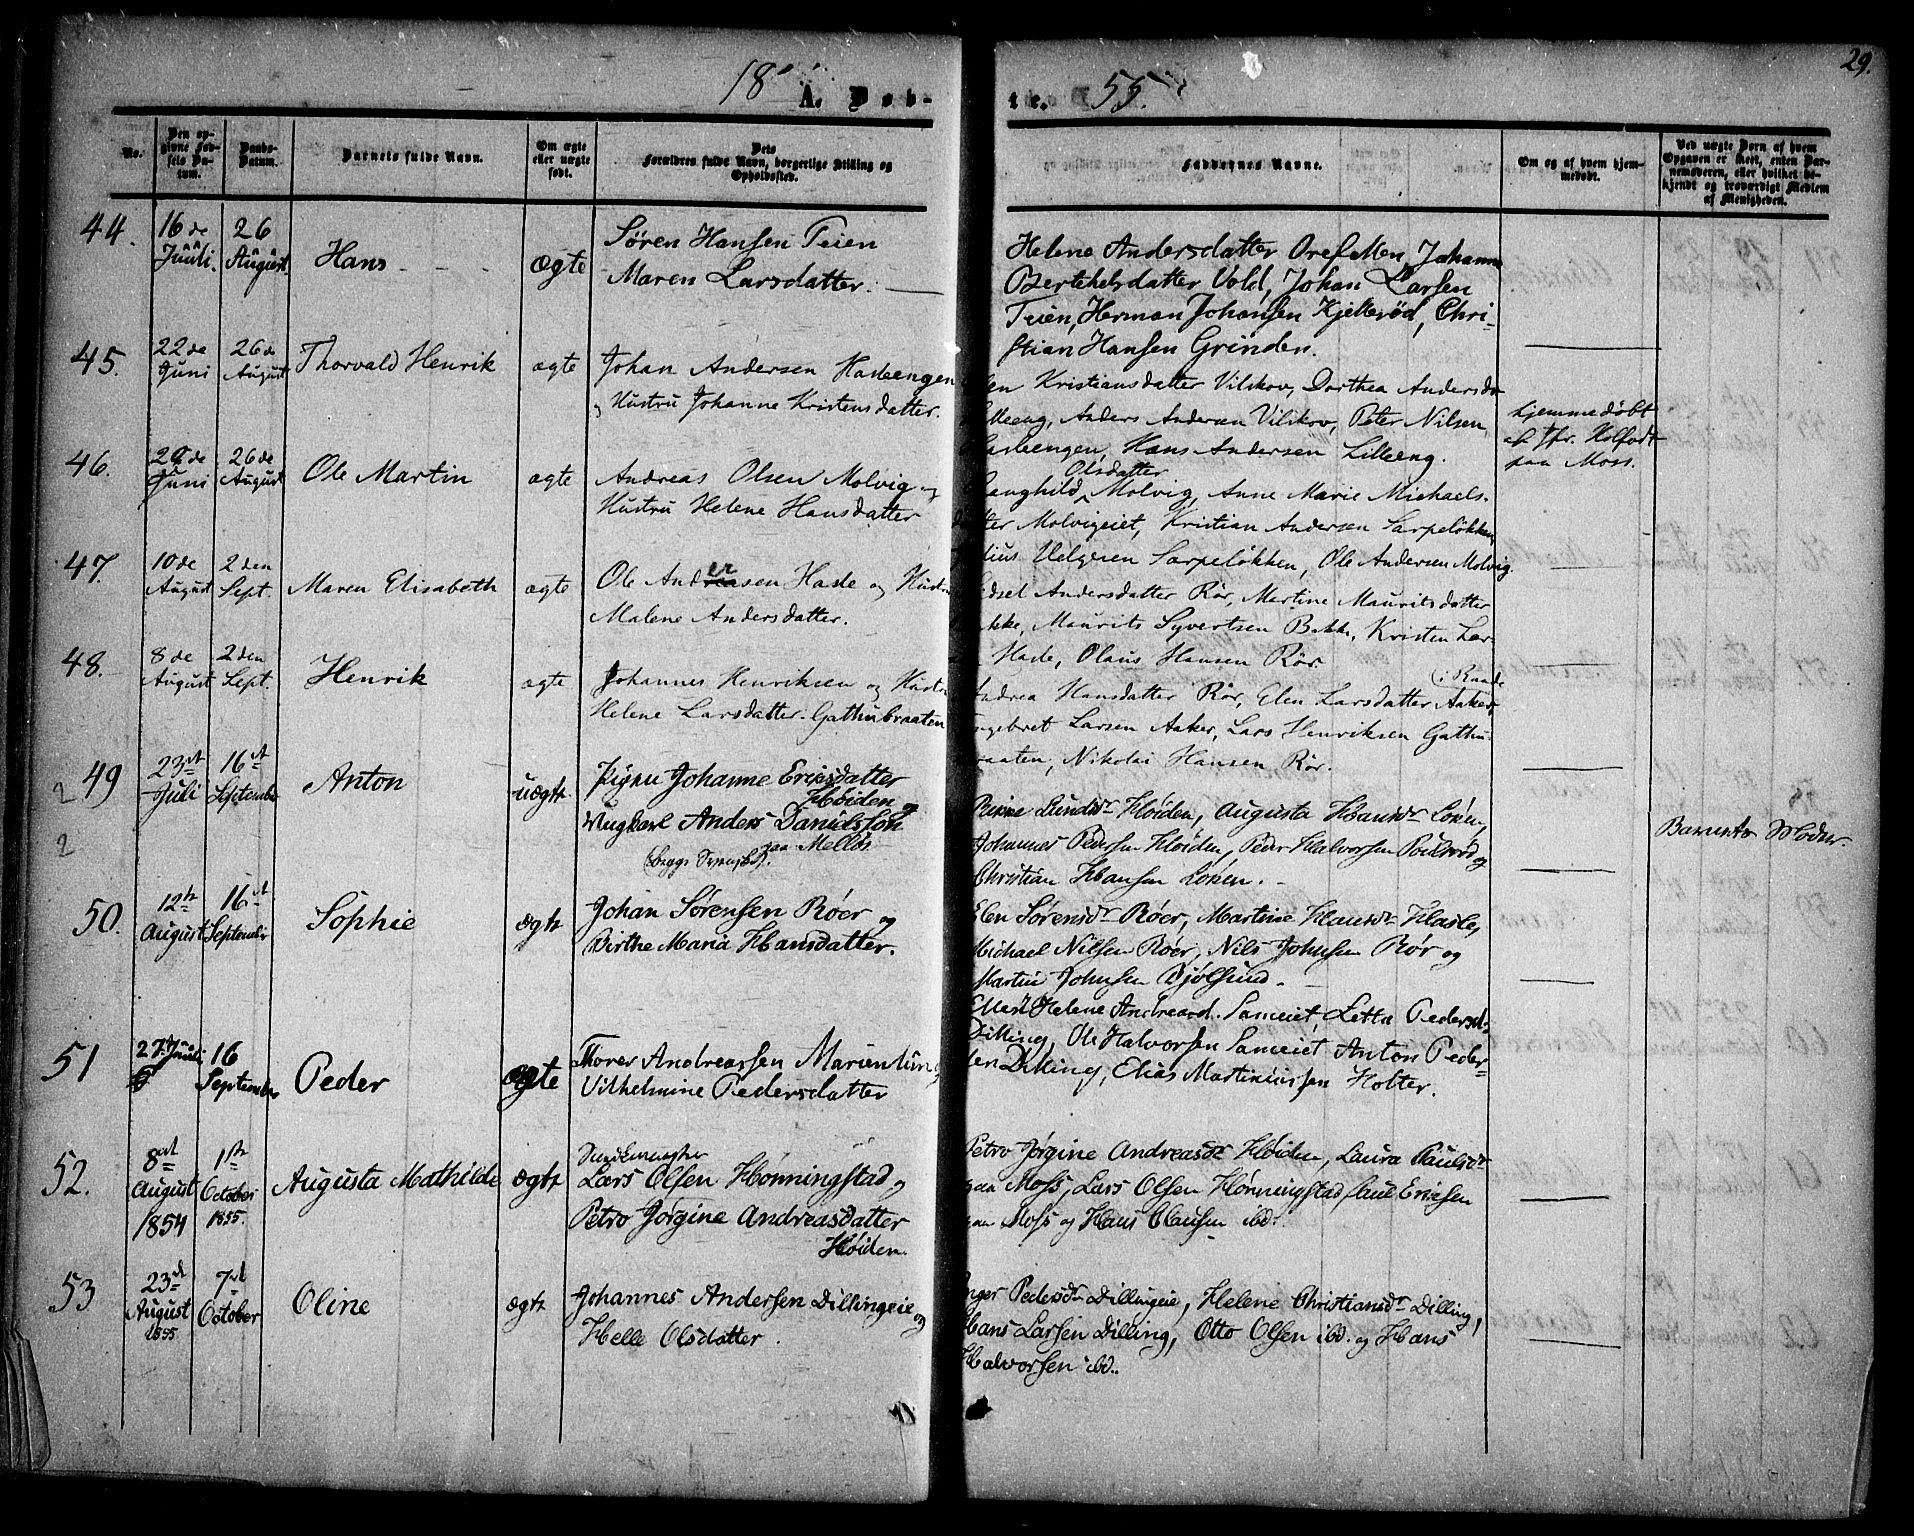 29.
18 A. Døb-
te. 55.
No.
Den op-
givne Fød-
sels Da-
tum.
Daabs-
Datum.
Barnets fulde Navn.
Om ægte
eller uægte
født.
Dets
Forældres fulde Navn, borgerlige Stilling og
Opholdssted.
Faddernes Navne.
Om og af hvem hjem-
medøbt.
Ved uægte Børn af hvem
Opgaven er skeet, enten Bar-
nemoderen, eller hvilket be-
kjendt og troværdigt Medlem
af Menigheden.
44.
16 de
Juuli
26
August
Hans
Ægte
Søren Hansen Teien
Maren Larsdatter.
Helene Andersdatter Johanne
Berthelsdatter Vold, Johan Larsen
Teien, Herman Johansen Kjellerød, Chri-
stian Hansen Grinden.
45.
22 de
Juni
26 de
August
Thorvald Henrik
ægte
Johan Andersen Hasleengen
og Hustru Johanne Kristensdatter.
Kristiansdatter Vilskov, Dorthea Andersda
Lilleeng, Anders Andersen Vilskov, Peter Nilsen
Hasleengen, Hans Andersen Lilleeng.
hjemmedøbt
af
paa Moss.
46.
de
Juni
26 de
August
Ole Martin
ægte
Andreas Olsen Molvig og
Hustru Helene Hansdatter
Olsdatter
Ranghild Molvig, Anne Marie Michaels-
datter Molvigeiet, Kristian Andersen Sarpeløkken,
Sarpeløkken, Ole Andersen Molvig.
47.
10 de
August
2 den
Sept.
Maren Elisabeth
ægte
Ole Andersen Hasle og Hustru
Malene Andersdatter.
Andersdatter Rør, Martine Mauritsdatter
Bakke, Maurits Syvertsen Bakke, Kristen Lar-
Hasle, Olaus Hansen Rør
48.
8 de
August
2 den
Sept.
Henrik
ægte
Johannes Henriksen og Hustru
Helene Larsdatter. Gathubraaten
(i Raade
Andrea Hansdatter Rør, Elen Larsdatter Aaker,
Engebret Larsen Aaker, Lars Henriksen Gathu-
braaten, Nikolai Hansen Rør.
2
49
23de
Juli
16de
September
Anton
uægte
Pigen Johanne Ericsdatter
Høiden og
Ungkarl Anders Danielsson
paa Melløs
(begges ).
Lundsdr Høiden, Augusta Hansdr Løken,
Johannes Pedersen Høiden, Peder Halvorsen og
Christian Hansen Løken.
Barnets Moder.
2
50.
12te
August
16de
September
Sophie
ægte
Johan Sørensen Røer og
Birthe Maria Hansdatter.
Elen Sørensdr Røer, Martine Hansdr Hasle,
Michael Nilsen Røer, Nils Johnsen Rør og
Martin Johnsen Bjølsund.
51
27. Juuli
16
September
Peder
ægte
Thorer Andreassen Marienlun
Vilhelmine Pedersdatter
Helene Andreasd. Sameiet, Letta Pedersd.
Dilling, Ole Halvorsen Sameiet, Anton Peder-
sen Dilling, Elias Martiniussen Holter.
52.
8de
August
1854
1ste
October
1855.
Augusta Mathilde
ægte
Lars Olsen Hønningstad og
Petro Jørgine Andreasdatter
Høiden.
Petro Jørgine Andreasdr Høiden, Laura Paulsdr
paa Moss, Lars Olsen Hønningstad, Paul Ericsen
paa Moss og Hans Clausen ibd.
53
23de
August
1855
7de
October
Oline
ægte
Johannes Andersen Dillingeie og
Helle Olsdatter.
Inger Pedersdr Dillingeie, Helene Christiansdr Dilling,
Hans Larsen Dilling, Otto Olsen ibd. og Hans
Halvorsen ibd.